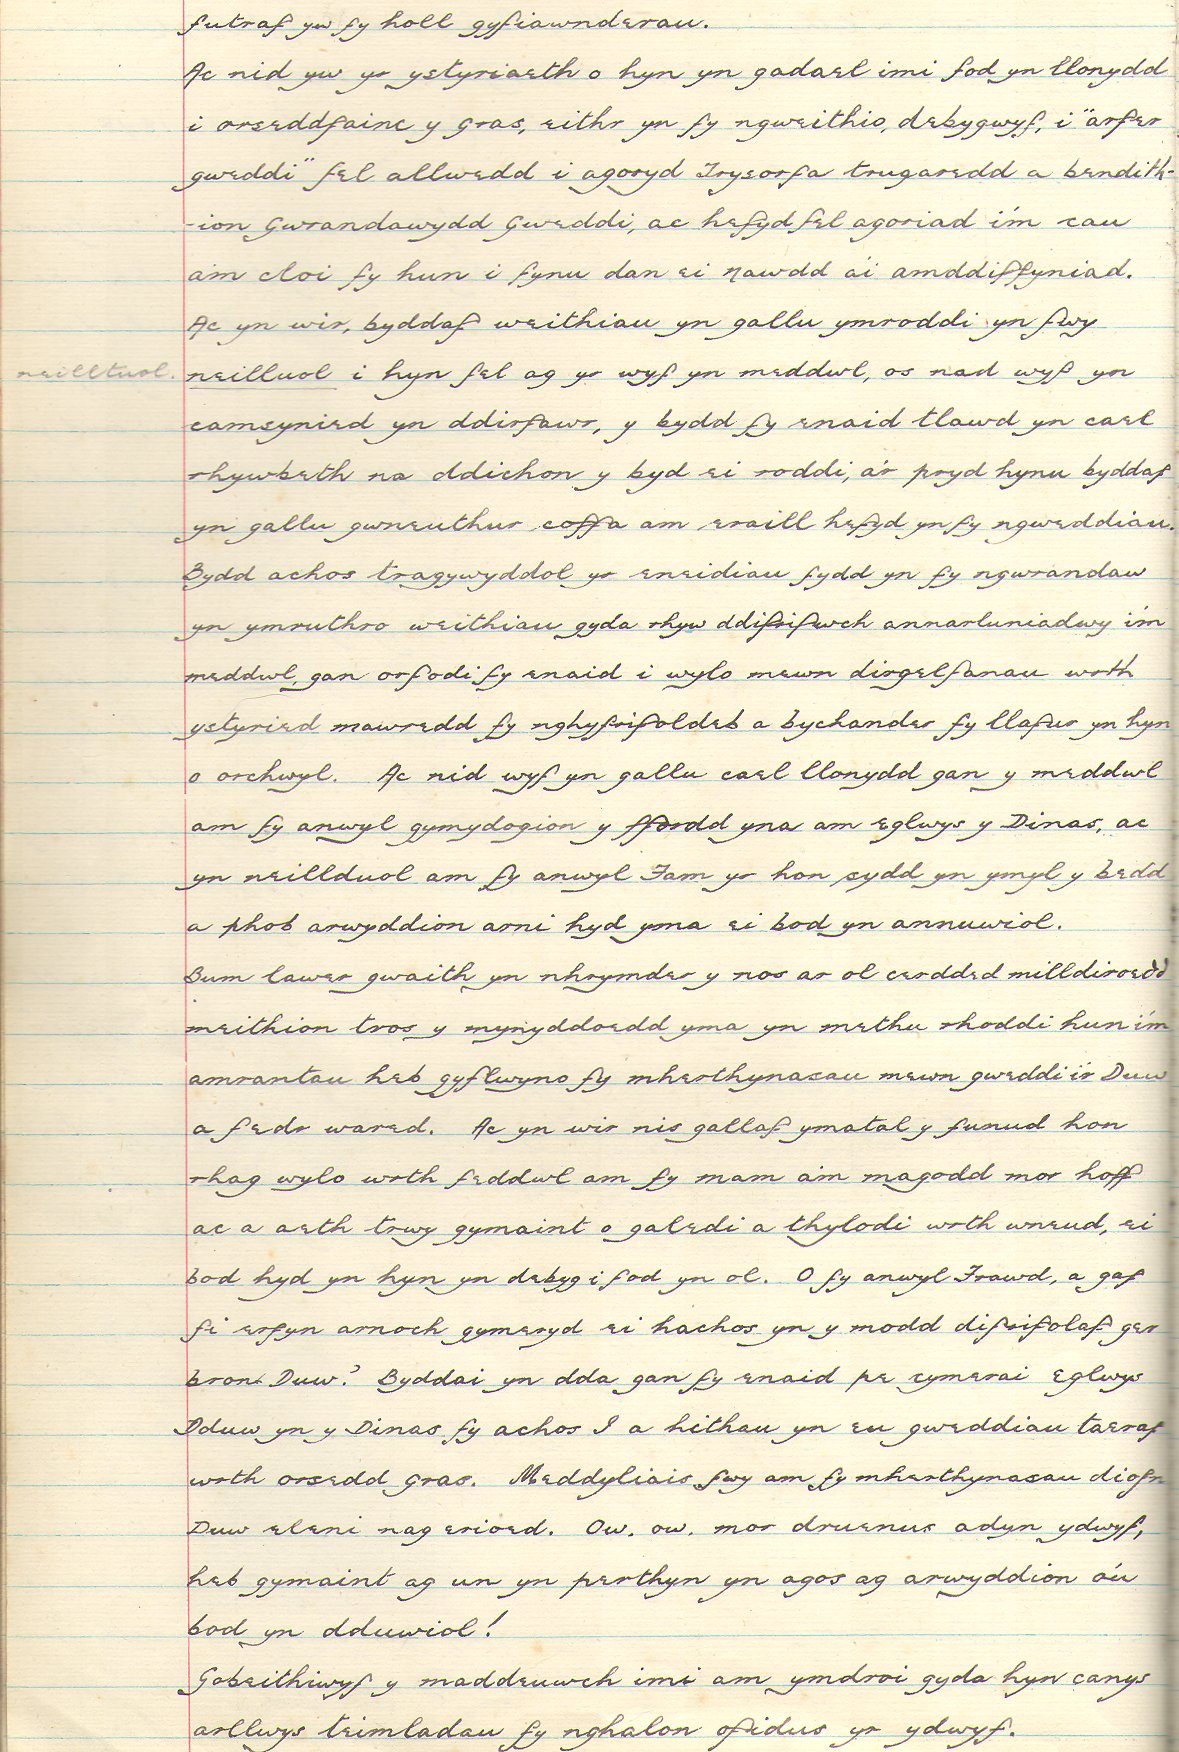 futraf yw fy holl gyfiawnderau.
Ac nid yw yr ystyriaeth o hyn yn gadael imi fod yn llonydd
i orseddfainc y Gras, eithr yn fy ngweithio, debygwyf, i "arfer
gweddi" fel allwedd i agoryd Trysorfa trugaredd a bendith-
-ion Gwrandawydd Gweddi, ac hefyd fel agoriad i'm cau
a'm cloi fy hun i fynu dan ei nawdd a'i amddiffyniad.
Ac yn wir, byddaf weithiau yn gallu ymroddi yn fwy
neilltuol. neilluol i hyn fel ag yr wyf yn meddwl, os nad wyf yn
camsynied yn ddirfawr, y bydd fy enaid tlawd yn cael
rhywbeth na ddichon y byd ei roddi, a'r pryd hynu byddaf
yn gallu gwneuthur coffa am eraill hefyd yn fy ngweddiau.
Bydd achos tragywyddol yr eneidiau fydd yn fy ngwrandaw
yn ymruthro weithiau gyda rhyw ddifrifwch annarluniadwy i'm
meddwl, gan orfodi fy enaid i wylo mewn dirgelfanau wrth
ystyried mawredd fy nghyfrifoldeb a bychander fy llafur yn hyn
o orchwyl. Ac nid wyf yn gallu cael llonydd gan y meddwl
am fy anwyl gymydogion y ffordd yna am eglwys y Dinas, ac
yn neillduol am fy anwyl Fam yr hon sydd yn ymyl y bedd
a phob arwyddion arni hyd yma ei bod yn annuwiol.
Bum lawer gwaith yn nhrymder y nos ar ol cerdded milldiroedd
meithion tros y mynyddoedd yma yn methu rhoddi hun i'm
amrantau heb gyflwyno fy mherthynasau mewn gweddi i'r Duw
a fedr wared. Ac yn wir nis gallaf ymatal y funud hon
rhag wylo wrth feddwl am fy mam a'm magodd mor hoff
ac a aeth trwy gymaint o galedi a thylodi wrth wneud, ei
bod hyd yn hyn yn debyg i fod yn ol. O fy anwyl Frawd, a gaf
fi erfyn arnoch gymeryd ei hachos yn y modd difrifolaf ger
bron Duw? Byddai yn dda gan fy enaid pe cymerai Eglwys
Dduw yn y Dinas fy achos I a hithau yn eu gweddiau taeraf
wrth orsedd Gras. Meddyliais fwy am fy mherthynasau diofn
Duw eleni nag erioed. Ow. ow. mor druenus adyn ydwyf,
heb gymaint ag un yn perthyn yn agos ag arwyddion o'u
bod yn dduwiol!
Gobeithiwyf y maddeuwch imi am ymdroi gyda hyn canys
arllwys teimladau fy nghalon ofidus yr ydwyf.